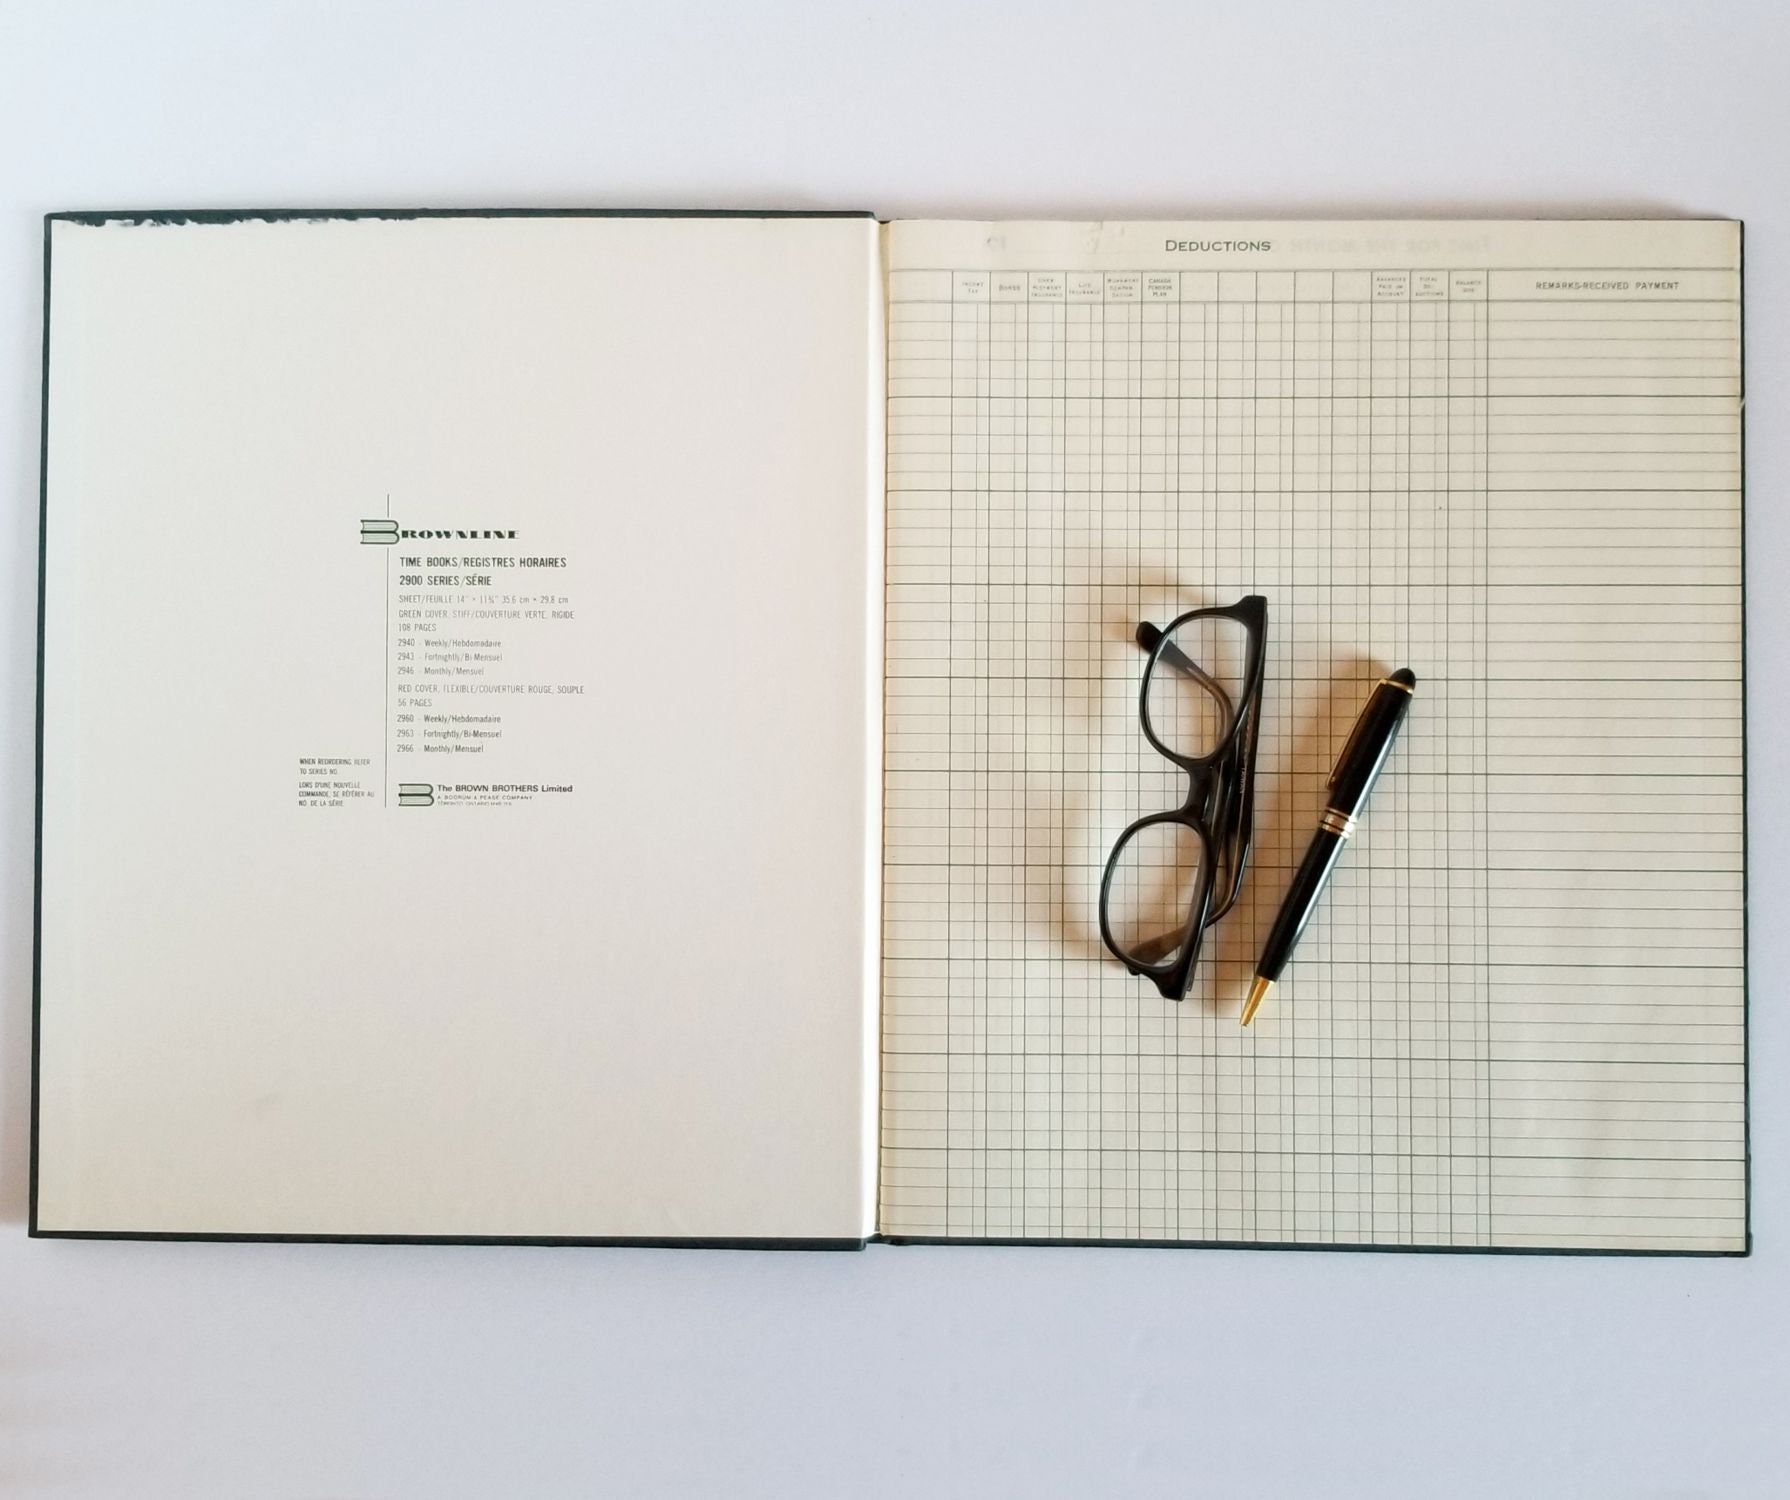 BROWNLINE
TIME BOOKS/REGISTRES HORAIRES
2900 SERIES/SÉRIE
SHEET/FEUILLE 14" × 11¾" 35.6 cm × 29.8 cm
GREEN COVER, STIFF/COUVERTURE VERTE, RIGIDE
108 PAGES
2940 - Weekly/Hebdomadaire
2943 - Fortnightly/Bi-Mensuel
2946 - Monthly/Mensuel
RED COVER, FLEXIBLE/COUVERTURE ROUGE, SOUPLE
56 PAGES
2960 - Weekly/Hebdomadaire
2963 - Fortnightly/Bi-Mensuel
2966 - Monthly/Mensuel
WHEN REORDERING REFER
TO SERIES NO.
LORS D'UNE NOUVELLE
COMMANDE, SE RÉFÉRER AU
NO. DE LA SÉRIE
The BROWN BROTHERS Limited
A BOORUM & PEASE COMPANY
TORONTO, ONTARIO
DEDUCTIONS
INCOME
TAX
BONDS
UNEM
PLOYMENT
INSURANCE
LIFE
INSURANCE
WORKMENS
COMPEN
SATION
CANADA
PENSION
PLAN
ADVANCES
PAID ON
ACCOUNT
TOTAL
DE-
DUCTIONS
BALANCE
DUE
REMARKS-RECEIVED PAYMENT